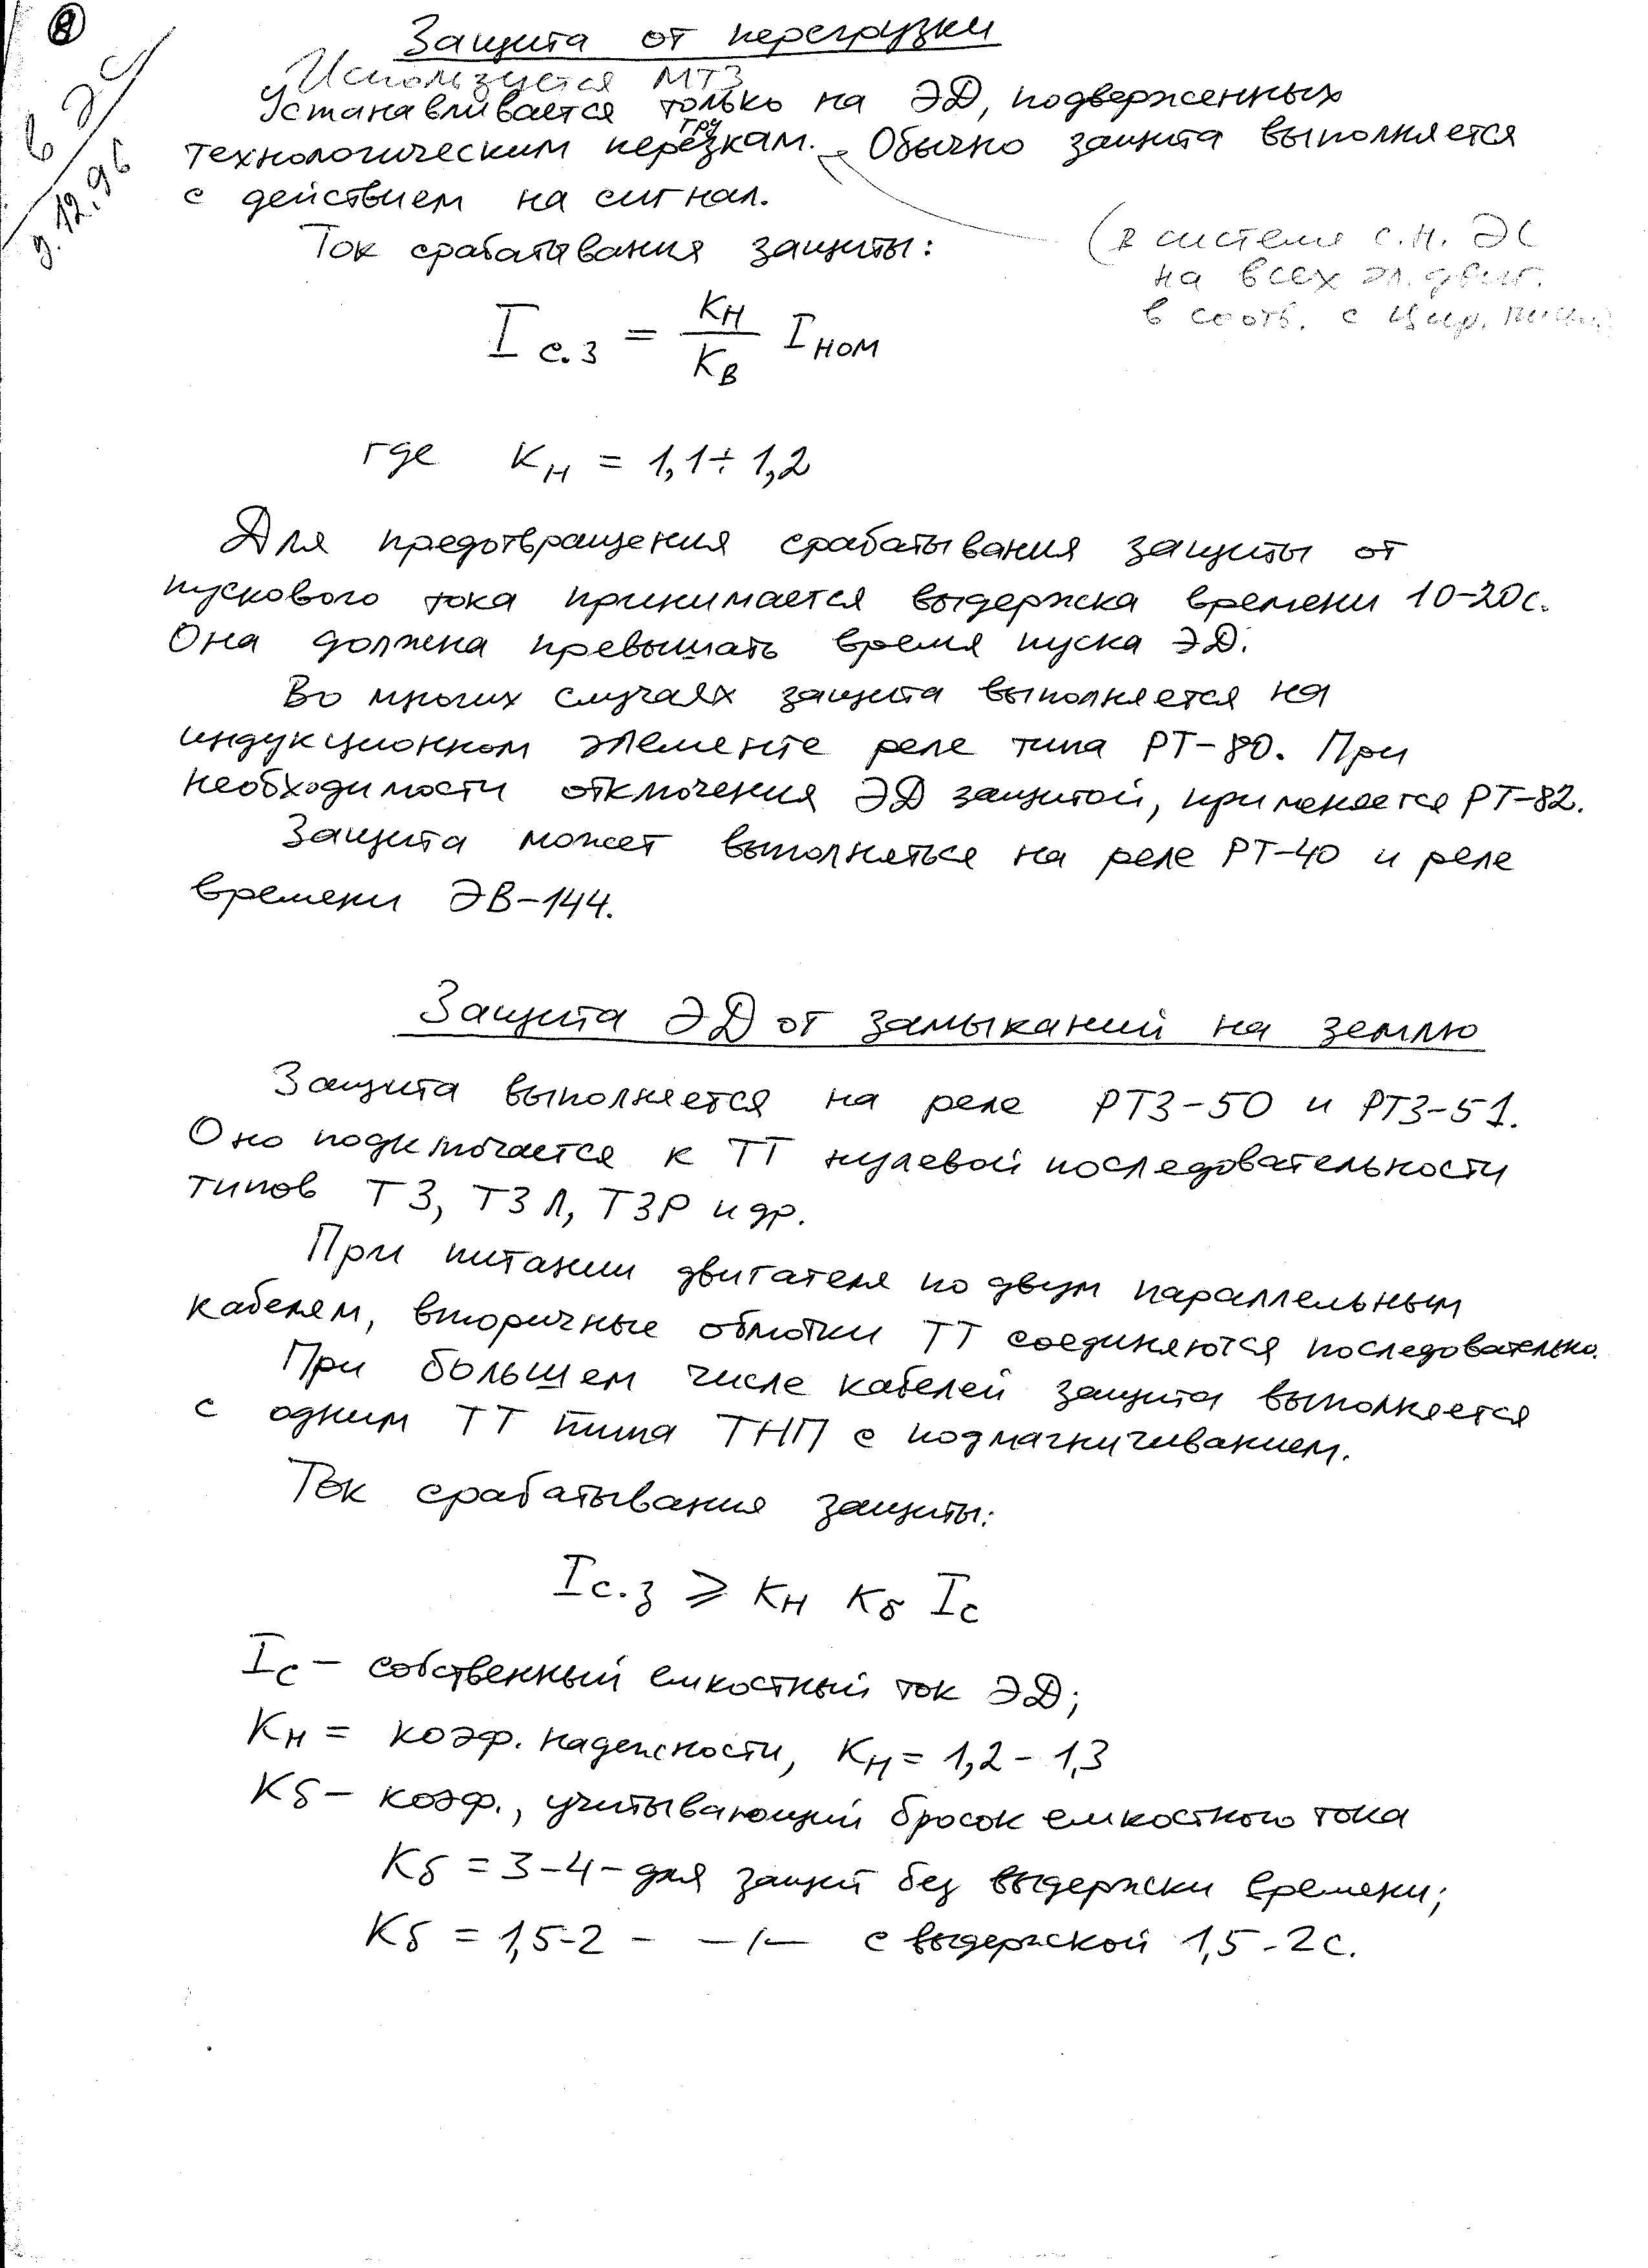 8
в ЭС
д.12.96
Защита от перегрузки
Используется МТЗ
Устанавливается только на ЭД, подверженных
гру
технологическим перезкам. Обычно защита выполняется
с действием на сигнал.
(в системе с.н. ЭС
на всех эл. двиг.
в соотв. с цир.
Ток срабатывания защиты:
I с.з = Kн / Kв I ном
где Kн = 1,1÷1,2
Для предотвращения срабатывания защиты от
пускового тока принимается выдержка времени 10-20с.
Она должна превышать время пуска ЭД.
Во многих случаях защита выполняется на
индукционном элементе реле типа РТ-80. При
необходимости отключения ЭД защитой, применяется РТ-82.
Защита может выполняться на реле РТ-40 и реле
времени ЭВ-144.
Защита ЭД от замыканий на землю
Защита выполняется на реле РТЗ-50 и РТЗ-51.
Оно подключается к ТТ нулевой последовательности
типов ТЗ, ТЗЛ, ТЗР и др.
При питании двигателя по двум параллельным
кабелям, вторичные обмотки ТТ соединяются последовательно.
При большем числе кабелей защита выполняется
с одним ТТ типа ТНП с подмагничиванием.
Ток срабатывания защиты:
Iс.з ⩾ Kн Kб Ic
Ic – собственный емкостный ток ЭД;
Kн = коэф. надежности, Kн = 1,2 - 1,3
Kб – коэф., учитывающий бросок емкостного тока
Kб = 3-4 - для защит без выдержки времени;
Kб = 1,5-2 - –/– с выдержкой 1,5-2с.